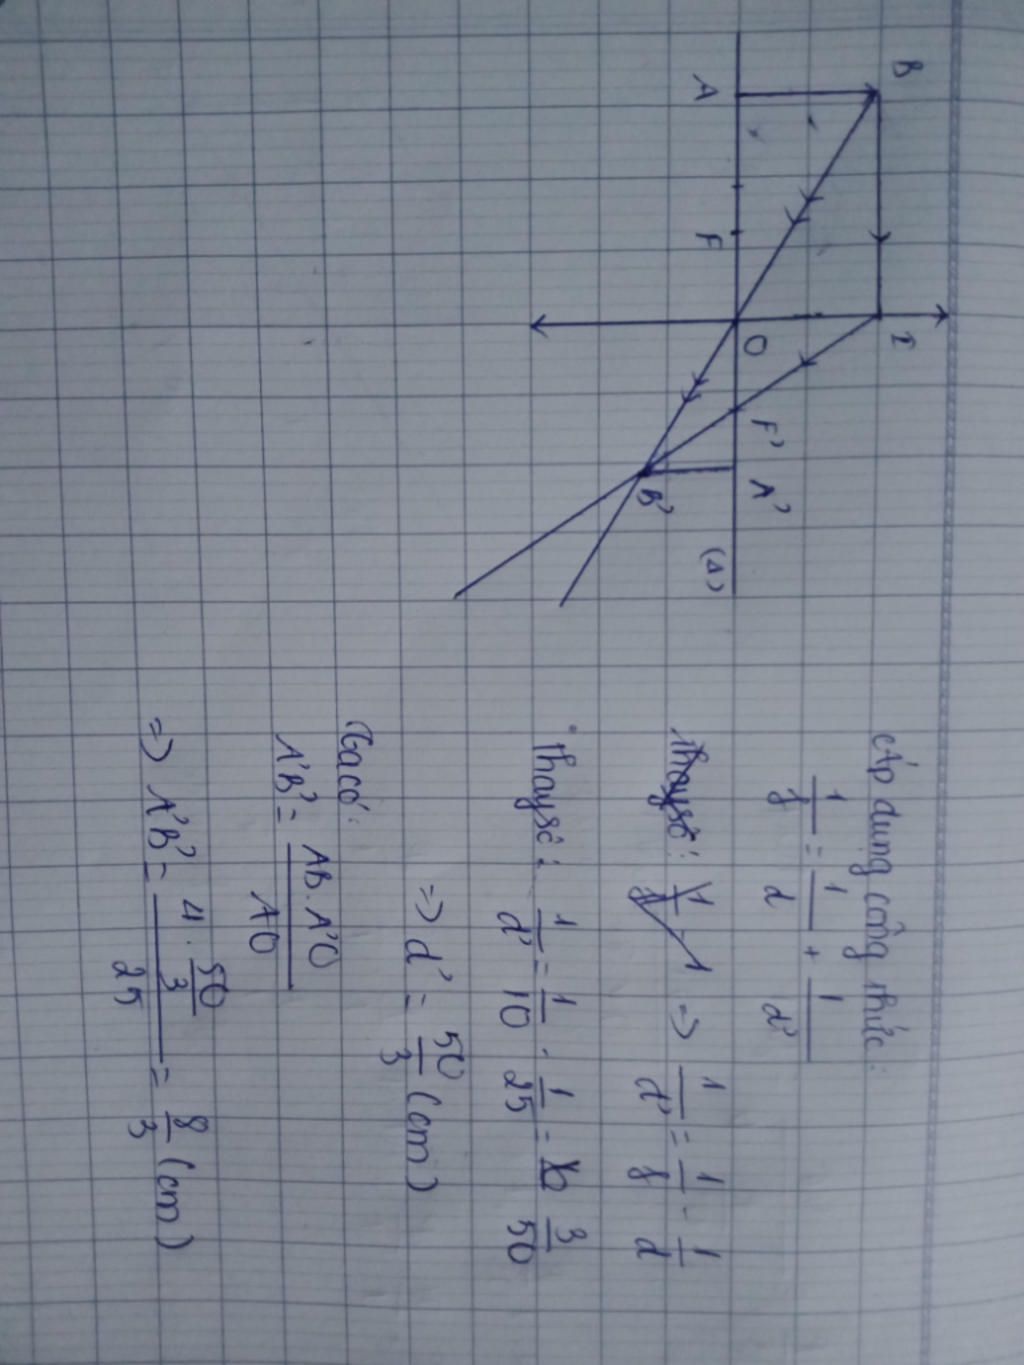 B
I
A
F
O
F'
A'
(Δ)
B'
Áp dụng công thức:
1/f = 1/d + 1/d'
Thay số: 1/f 1 => 1/d' = 1/f - 1/d
Thay số: 1/d' = 1/10 - 1/25 = 3/50
=> d' = 50/3 (cm)
Ta có:
A'B' = AB.A'O/AO
=> A'B' = 4.50/3/25 = 8/3 (cm)